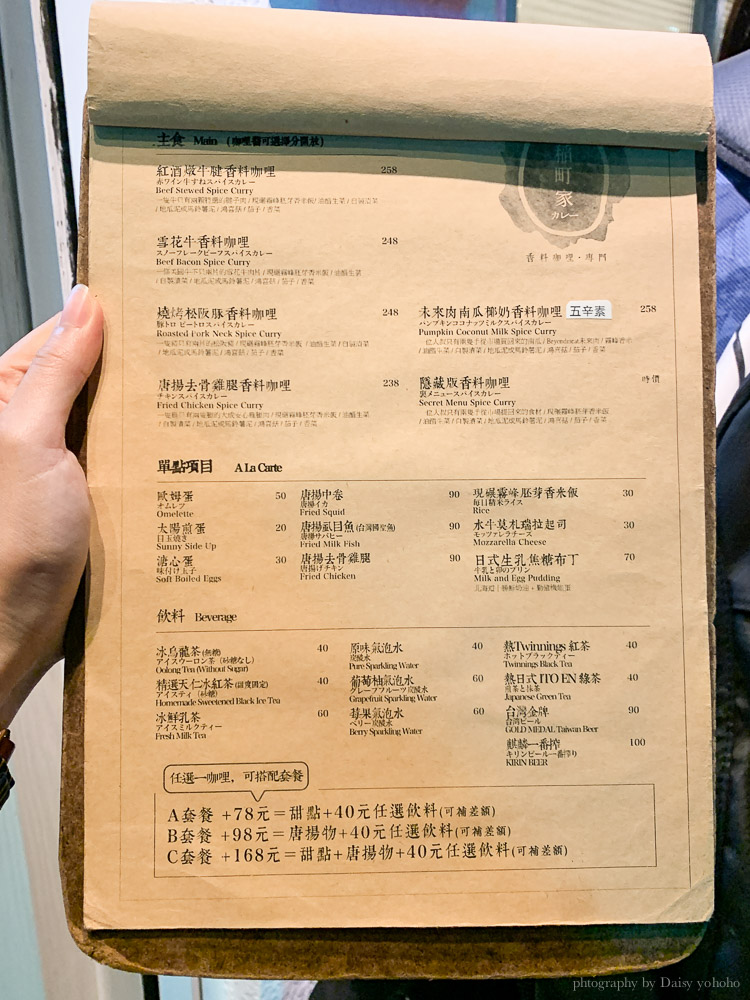 主食 Main (咖哩醬可選擇分開放)
稻町家
カレー
香料咖哩・專門
紅酒燉牛腱香料咖哩 258
赤ワイン牛すねスパイスカレー
Beef Stewed Spice Curry
雪花牛香料咖哩 248
スノーフレークビーフスパイスカレー
Beef Bacon Spice Curry
燒烤松阪豚香料咖哩 248
豚トロ ピートロスパイスカレー
Roasted Pork Neck Spice Curry
未來肉南瓜椰奶香料咖哩 五辛素 258
パンプキンココナッツミルクスパイスカレー
Pumpkin Coconut Milk Spice Curry
唐揚去骨雞腿香料咖哩 238
チキンスパイスカレー
Fried Chicken Spice Curry
隱藏版香料咖哩 時價
裏メニュースパイスカレー
Secret Menu Spice Curry
單點項目 A La Carte
歐姆蛋 50
オムレフ
Omelette
太陽煎蛋 20
目玉焼き
Sunny Side Up
溏心蛋 30
味付け玉子
Soft Boiled Eggs
唐揚中卷 90
唐揚イカ
Fried Squid
唐揚虱目魚(台灣國宝魚) 90
唐揚サバヒー
Fried Milk Fish
唐揚去骨雞腿 90
唐揚げチキン
Fried Chicken
現碾霧峰胚芽香米飯 30
毎日精米ライス
Rice
水牛莫札瑞拉起司 30
モッツァレラチース
Mozzarella Cheese
日式生乳焦糖布丁 70
牛乳と卵のプリン
Milk and Egg Pudding
飲料 Beverage
冰烏龍茶(無糖) 40
アイスウーロン茶（砂糖なし）
Oolong Tea (Without Sugar)
精選天仁冰紅茶(甜度固定) 40
アイスティ（砂糖）
Homemade Sweetened Black Ice Tea
冰鮮乳茶 60
アイスミルクティー
Fresh Milk Tea
原味氣泡水 40
炭酸水
Pure Sparkling Water
葡萄柚氣泡水 60
グレーフフルーツ炭酸水
Grapefruit Sparkling Water
莓果氣泡水 60
ベリー炭酸水
Berry Sparkling Water
熱Twinnings 紅茶 40
ホットブラックティー
Twinnings Black Tea
熱日式 ITO EN 綠茶 40
煎茶と抹茶
Japanese Green Tea
台灣金牌 90
台湾ビール
GOLD MEDAL Taiwan Beer
麒麟一番搾 100
キリンビール一番搾り
KIRIN BEER
任選一咖哩，可搭配套餐
A套餐 +78元=甜點+40元任選飲料(可補差額)
B套餐 +98元=唐揚物+40元任選飲料(可補差額)
C套餐 +168元=甜點+唐揚物+40元任選飲料(可補差額)
phtography by Daisy yohoho